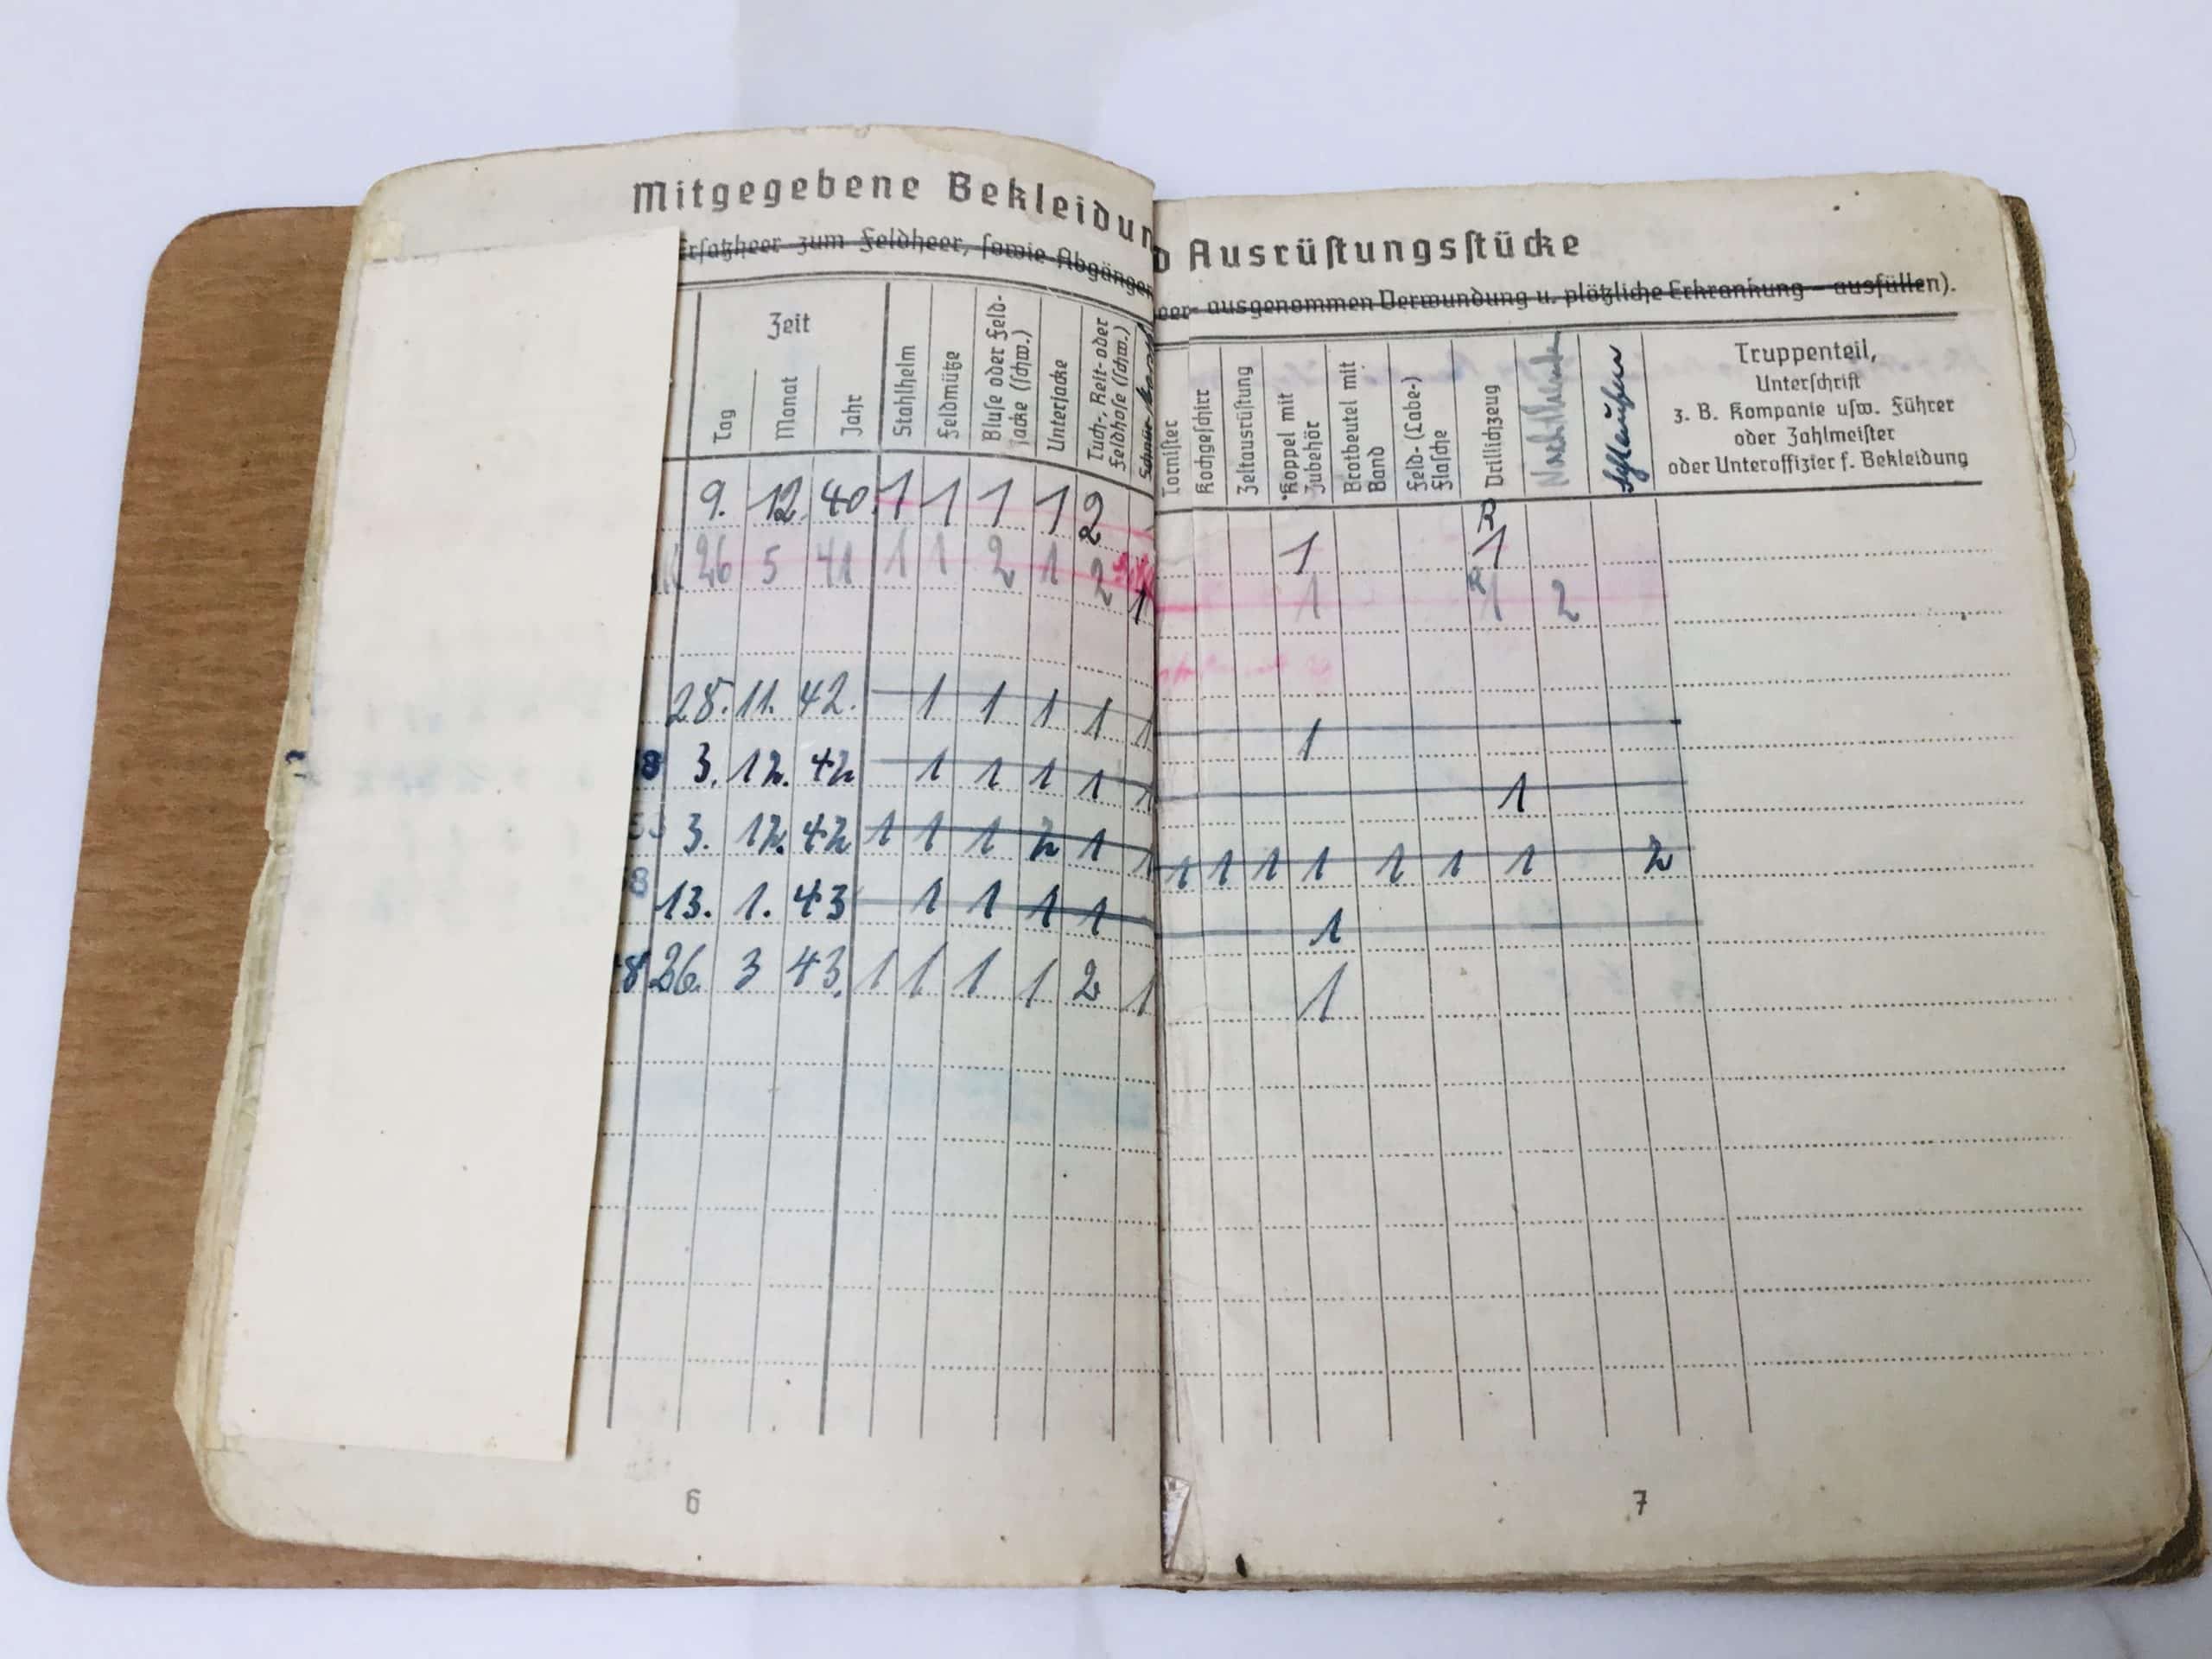 Mitgegebene Bekleidun
d Ausrüstungsstücke
Ersatzheer zum Feldheer, sowie Abgänger
eer ausgenommen Verwundung u. plötzliche Erkrankung – ausfüllen).
Zeit
Tag Monat Jahr Stahlhelm Feldmütze Bluse oder Feld-jacke (schw.) Unterjacke Tuch-, Reit- oder Feldhose (schw.)
Tornister Kochgeschirr Zeltausrüstung Koppel mit Zubehör Brotbeutel mit Band Feld- (Labe-) Flasche Drillichzeug
Truppenteil,
Unterschrift
z. B. Kompanie usw. Führer
oder Zahlmeister
oder Unteroffizier f. Bekleidung
9. 12. 40. 1 1 1 1 2 1 R 1
26 5 41 1 1 2 1 2 1 1 R 1 2
28. 11. 42. 1 1 1 1 1 1
8 3. 12. 42 1 1 1 1 1 1
3. 12. 42 1 1 1 2 1 1 1 1 1 1 1 1 1 2
8 13. 1. 43 1 1 1 1 1
8 26. 3 43. 1 1 1 1 2 1 1
6
7